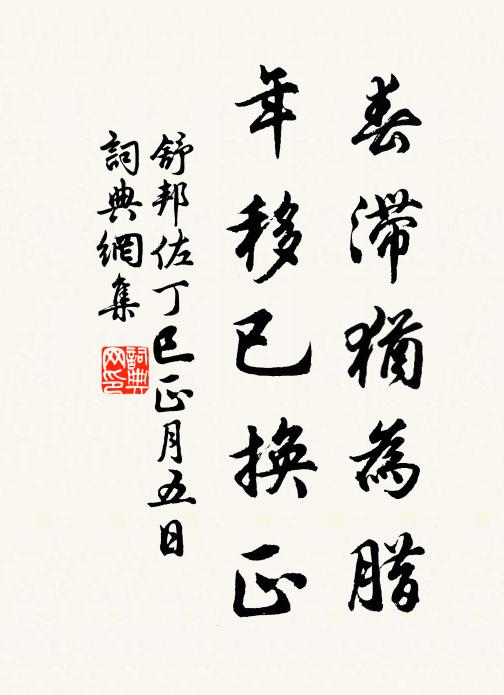 春滯猶為腊
年移已換正
舒邦佐丁巳正月五日
詞典網集
詞典
网印